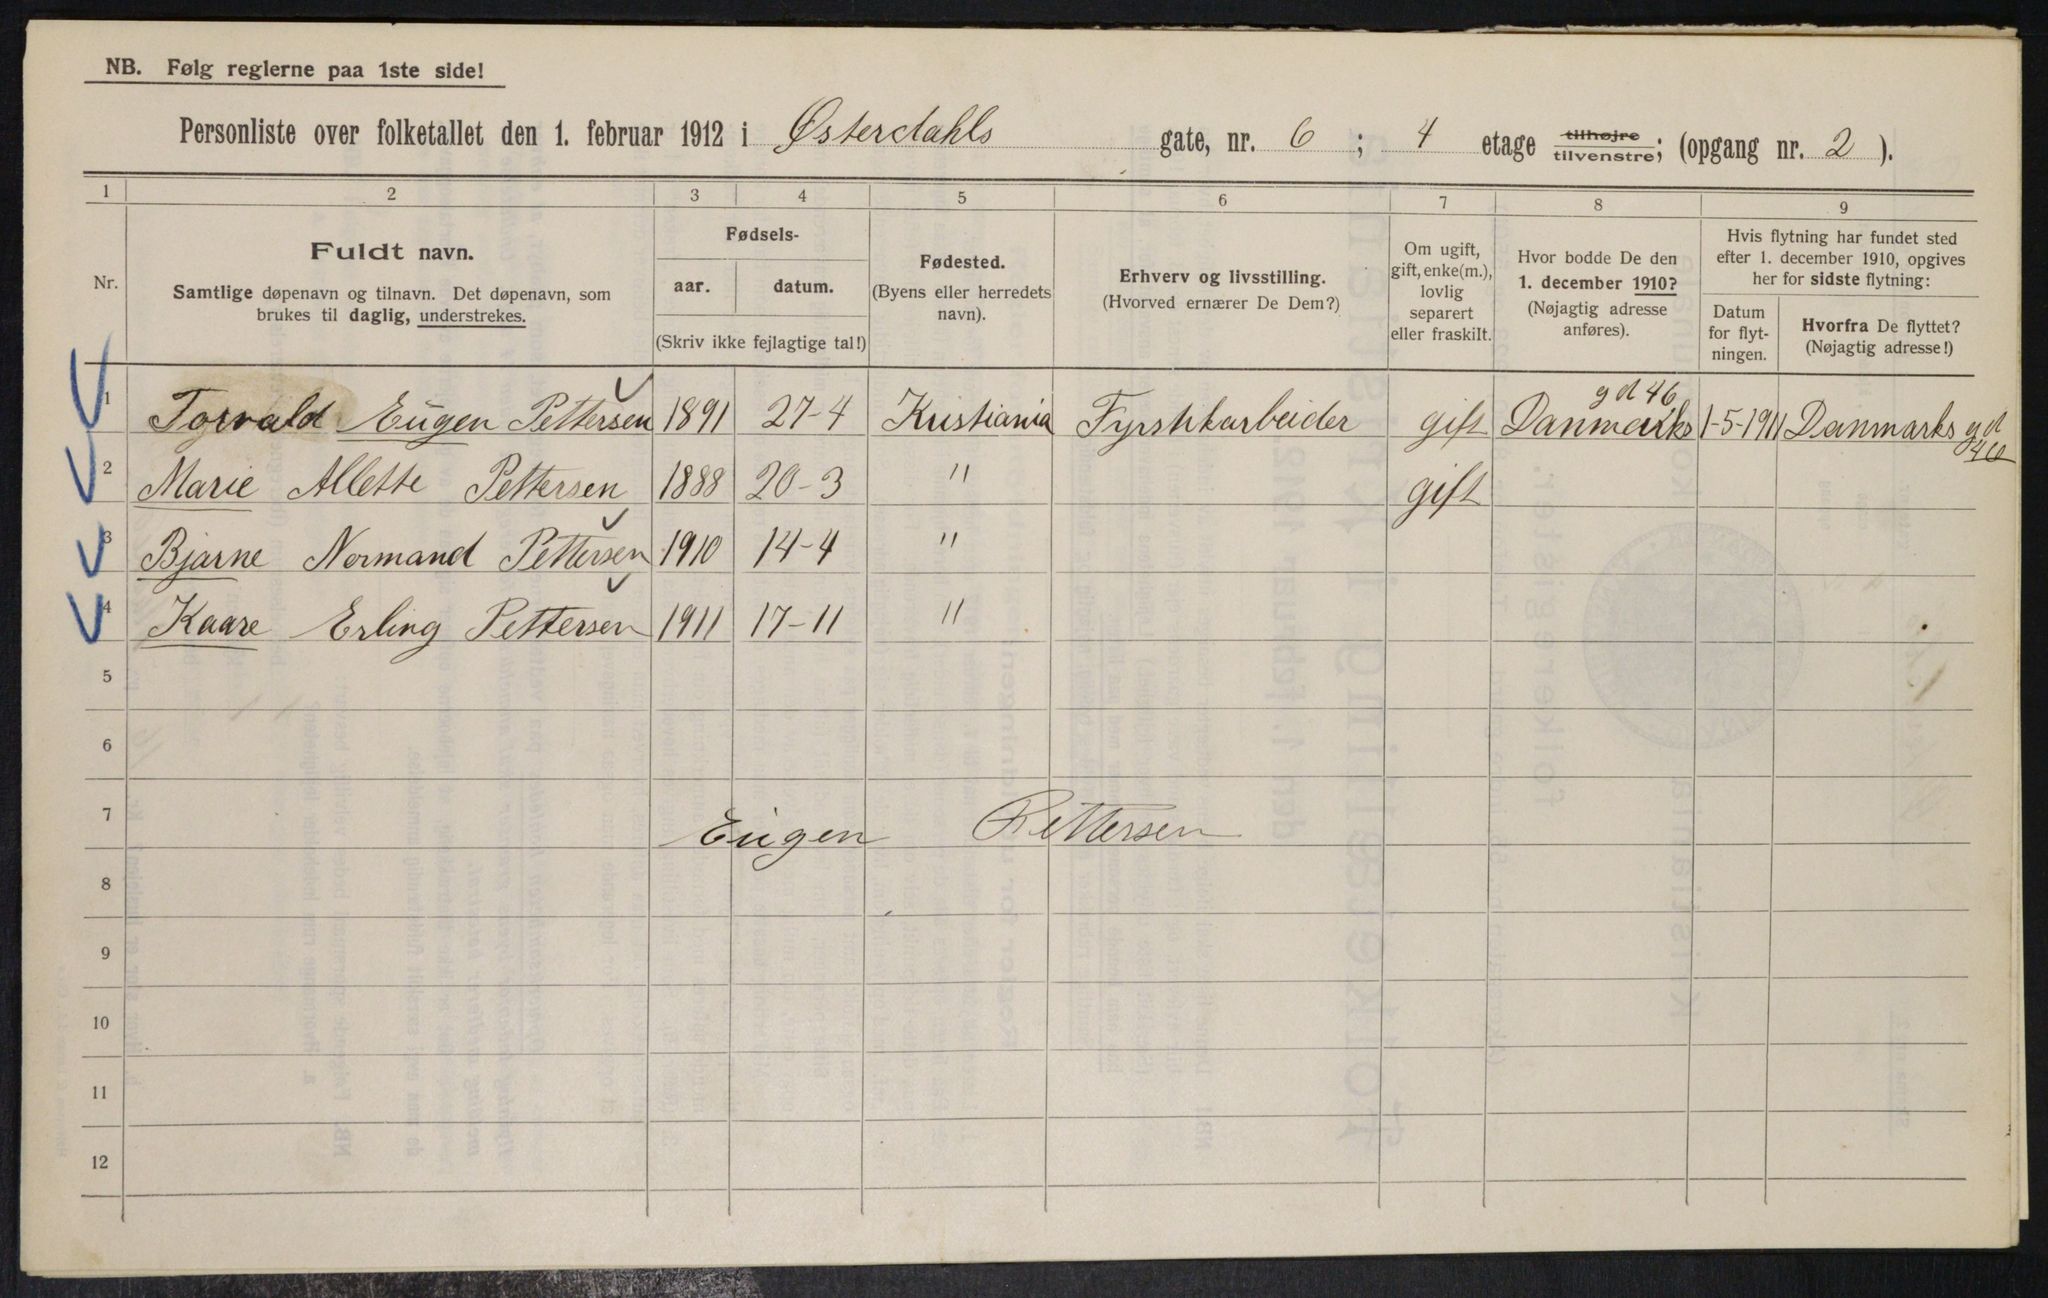 NB. Følg reglerne paa 1ste side!
Personliste over folketallet den 1. februar 1912 i Østerdahls gate, nr. 6 ; 4 etage tilhøjre tilvenstre; (opgang nr. 2 ).
1 2 3 4 5 6 7 8 9
Nr.
Fuldt navn.
Samtlige døpenavn og tilnavn. Det døpenavn, som
brukes til daglig, understrekes.
Fødsels-
aar. datum.
(Skriv ikke fejlagtige tal!)
Fødested.
(Byens eller herredets
navn).
Erhverv og livsstilling.
(Hvorved ernærer De Dem?)
Om ugift,
gift, enke(m.),
lovlig
separert
eller fraskilt.
Hvor bodde De den
1. december 1910?
(Nøjagtig adresse
anføres).
Hvis flytning har fundet sted
efter 1. december 1910, opgives
her for sidste flytning:
Datum
for flyt-
ningen.
Hvorfra De flyttet?
(Nøjagtig adresse!)
1 Torvald Eugen Pettersen 1891 27-4 Kristiania gift Danmarks gd 46 1-5-1911 Danmarks gd 46
2 Marie Allette Pettersen 1888 20-3 " gift
3 Bjarne Normand Pettersen 1910 14-4 "
4 Kaare Erling Pettersen 1911 17-11 "
5
6
7
Eugen Pettersen
8
9
10
11
12